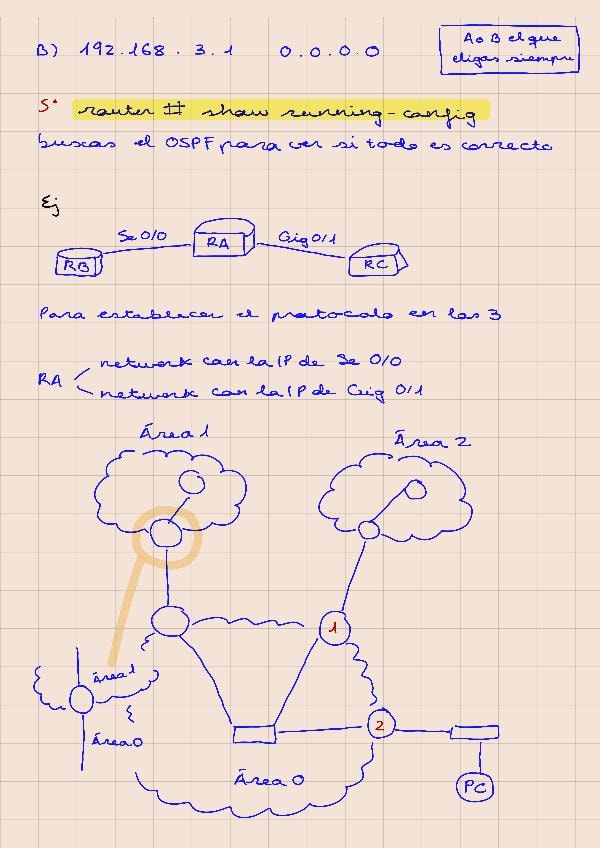 B) 192.168.3.1 0.0.0.0
A o B el que
eligas siempre
5• router # show running-config
buscas el OSPF para ver si todo es correcto
Ej
Se 0/0
RA
Gig 0/1
RB
RC
Para establecer el protocolo en los 3
RA
network con la IP de Se 0/0
network con la IP de Gig 0/1
Área 1
Área 2
1
Área 1
2
Área 0
Área 0
PC